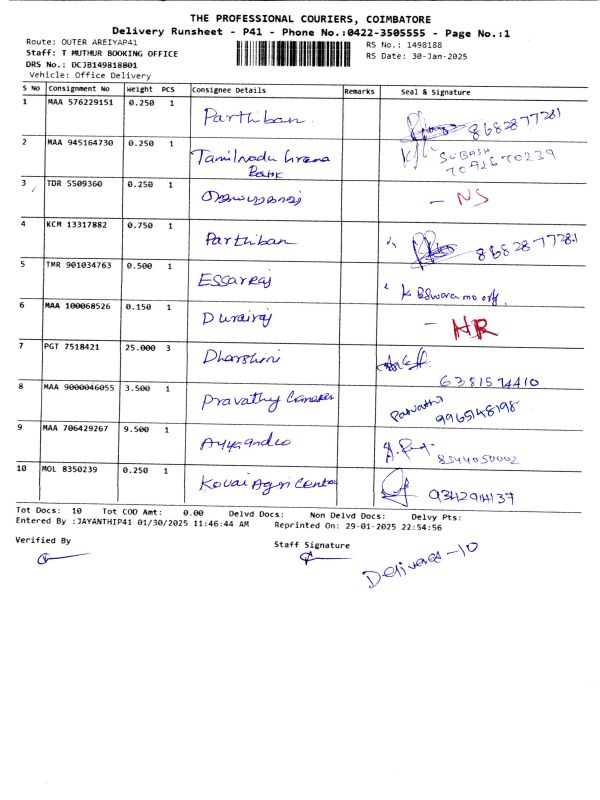 THE PROFESSIONAL COURIERS, COIMBATORE
Delivery Runsheet - P41 - Phone No.:0422-3505555 - Page No.:1
Route: OUTER AREIYAP41
RS No.: 1498188
Staff: T MUTHUR BOOKING OFFICE
RS Date: 30-Jan-2025
DRS No.: DCJB149818801
Vehicle: Office Delivery
S No Consignment No Weight PCS Consignee Details Remarks Seal & Signature
1 MAA 576229151 0.250 1 Parthiban 8682877281
2 MAA 945164730 0.250 1 Tamilnadu Grama Bank SUBASH
3 TDR 5509360 0.250 1 - NS
4 KCM 13317882 0.750 1 Parthiban 8682877281
5 TMR 901034763 0.500 1 Essarraj
6 MAA 100068526 0.150 1 Durairaj - HR
7 PGT 7518421 25.000 3 Dharshini 6381574410
8 MAA 9000046055 3.500 1 Pravathy Parvathi 9965148198
9 MAA 706429267 9.500 1 8344050002
10 MOL 8350239 0.250 1 Kovai Agri Center
Tot Docs: 10 Tot COD Amt: 0.00 Delvd Docs: Non Delvd Docs: Delvy Pts:
Entered By :JAYANTHIP41 01/30/2025 11:46:44 AM Reprinted On: 29-01-2025 22:54:56
Verified By
Staff Signature
Deliveres - 10